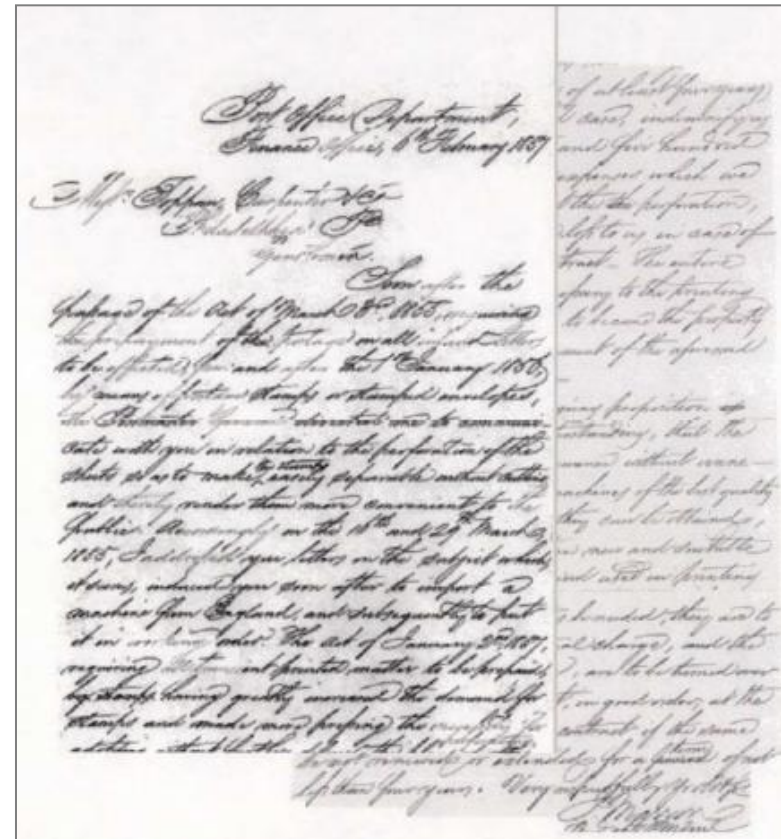 Post Office Department,
Finance Office, 6th February 1857
Messrs. Toppan, Carpenter & Co
Philadelphia Pa
Gentlemen.
Soon after the
passage of the Act of March 3rd, 1855, requiring
the prepayment of the Postage on all inland letters
to be effected, from and after the 1st January 1856,
by means of postage stamps or stamped envelopes,
the Postmaster General directed me to communi-
cate with you in relation to the perforation of the
sheets so as to make the stamps easily separable without cutting
and thereby render them more convenient to the
public. Accordingly on the 16th and 29th March,
1855, I addressed you letters on the subject which,
it seems, induced you soon after to import a
machine from England, and subsequently to put
it in working order. The Act of January 2nd, 1857,
requiring transient printed matter to be prepaid
by stamps having greatly increased the demand for
stamps and made more pressing the necessity for
of at least four years,
case, indemnifying
and five hundred
expenses which we
the perforation,
loss to us in case of
tract — The entire
to the printing
to become the property
of the aforesaid
proposition
understanding, that the
without
machines of the best quality
they can be obtained,
new and suitable
in printing
they are to
charge, and the
are to be turned over
in good order, at the
contract of the same
be not renewed or extended for a term of not
less than four years. Very respectfully Yr Obt